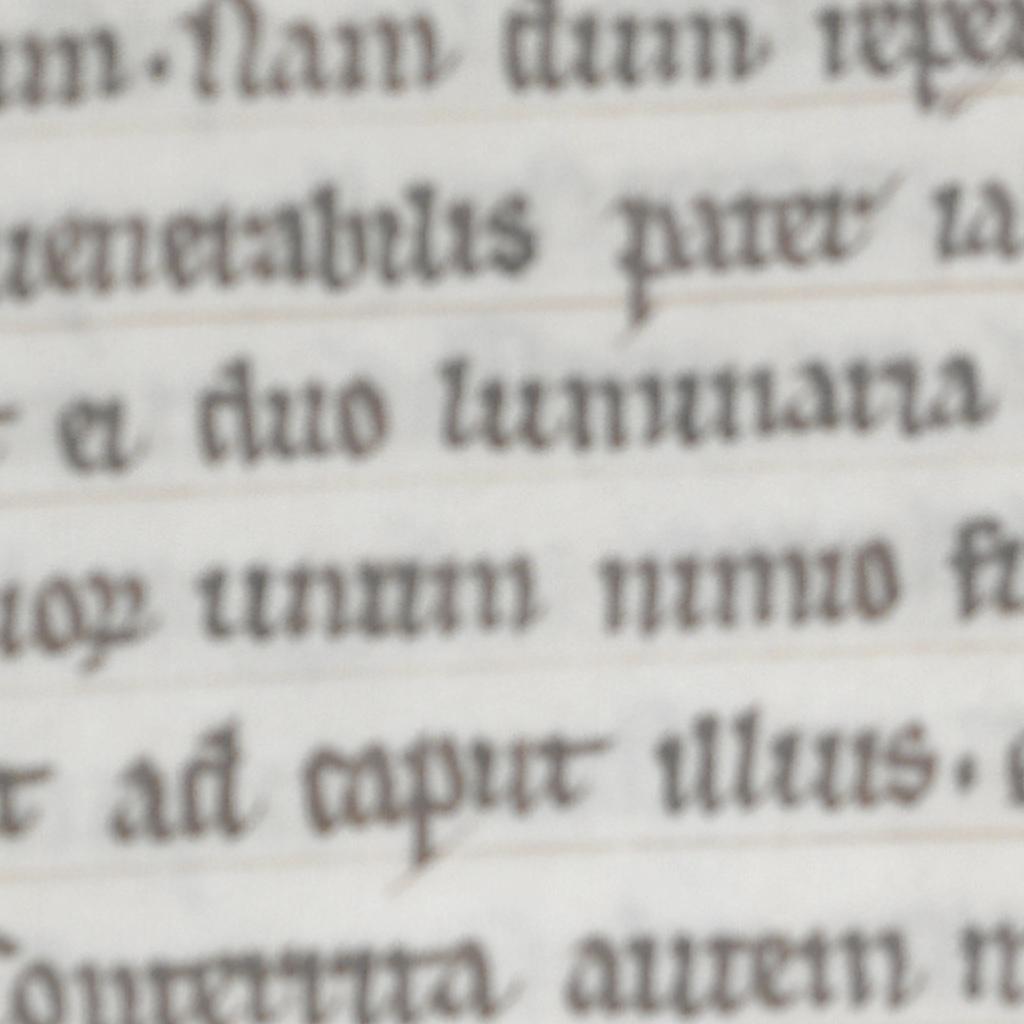 um. Nam dum repe
uenerabilis pater ia
t ei duo luminaria
uoꝝ unum nimio fu
t ad caput illius.
Conterrita autem